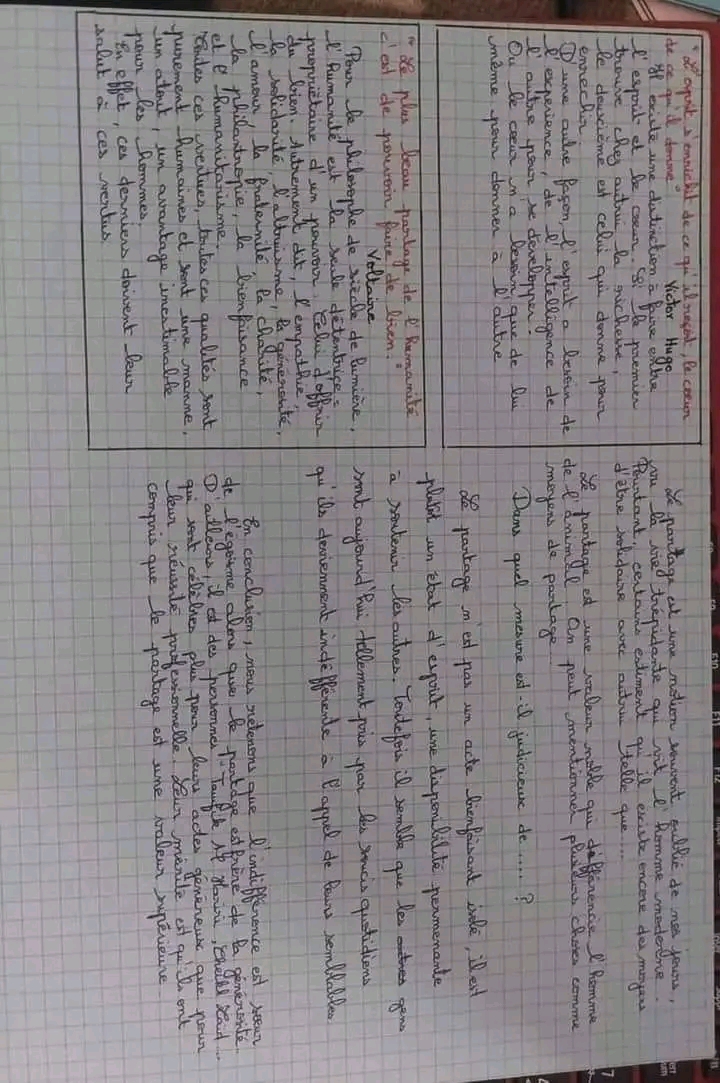 "L'esprit s'enrichit de ce qu'il reçoit, le cœur
de ce qu'il donne"
Victor Hugo
Il existe une distinction à faire entre
l'esprit et le cœur. Si le premier
trouve chez autrui la richesse,
le deuxième est celui qui donne pour
enrichir
D'une autre façon, l'esprit a besoin de
l'expérience, de l'intelligence de
l'autre pour se développer.
Ou le cœur n'a besoin que de lui
même pour donner à l'autre
"Le plus beau partage de l'humanité
c'est de pouvoir faire de bien."
Voltaire
Pour le philosophe de siècle de lumière,
l'humanité est la seule détentrice,
propriétaire d'un pouvoir. Celui d'offrir
du bien. Autrement dit, l'empathie,
la solidarité, l'altruisme, la générosité,
l'amour, la fraternité, la charité,
la philantropie, la bienfaisance
et l'humanitarisme.
Toutes ces vertues, toutes ces qualités sont
purement humaines et sont une manne,
un atout, un avantage inestimable
pour les hommes.
En effet, ces derniers doivent leur
salut à ces vertus
Le partage est une notion souvent oublié de nos jours,
vu la vie trépidante qui vit l'homme moderne.
Pourtant, certains estiment qu'il existe encore des moyens
d'être solidaire avec autrui telle que...
Le partage est une valeur noble qui différencie l'homme
de l'animal On peut mentionner plusieurs choses comme
moyens de partage
Dans quel mesure est-il judicieux de ..... ?
Le partage n'est pas un acte bienfaisant isolé, il est
plutôt un état d'esprit, une disponibilité permenante
à soutenir les autres. Toutefois il semble que les gens
sont aujourd'hui tellement pris par les soucis quotidiens
qu'ils deviennent indifférents à l'appel de leurs semblables
En conclusion, nous retenons que l'indifférence est sœur
de l'égoïsme alors que le partage est frère de la générosité.
D'ailleurs, il est des personnes
qui sont célèbres plus pour leurs actes généreux que pour
leur réussite professionnelle. Leur mérite est qu'ils ont
compris que le partage est une valeur supérieure